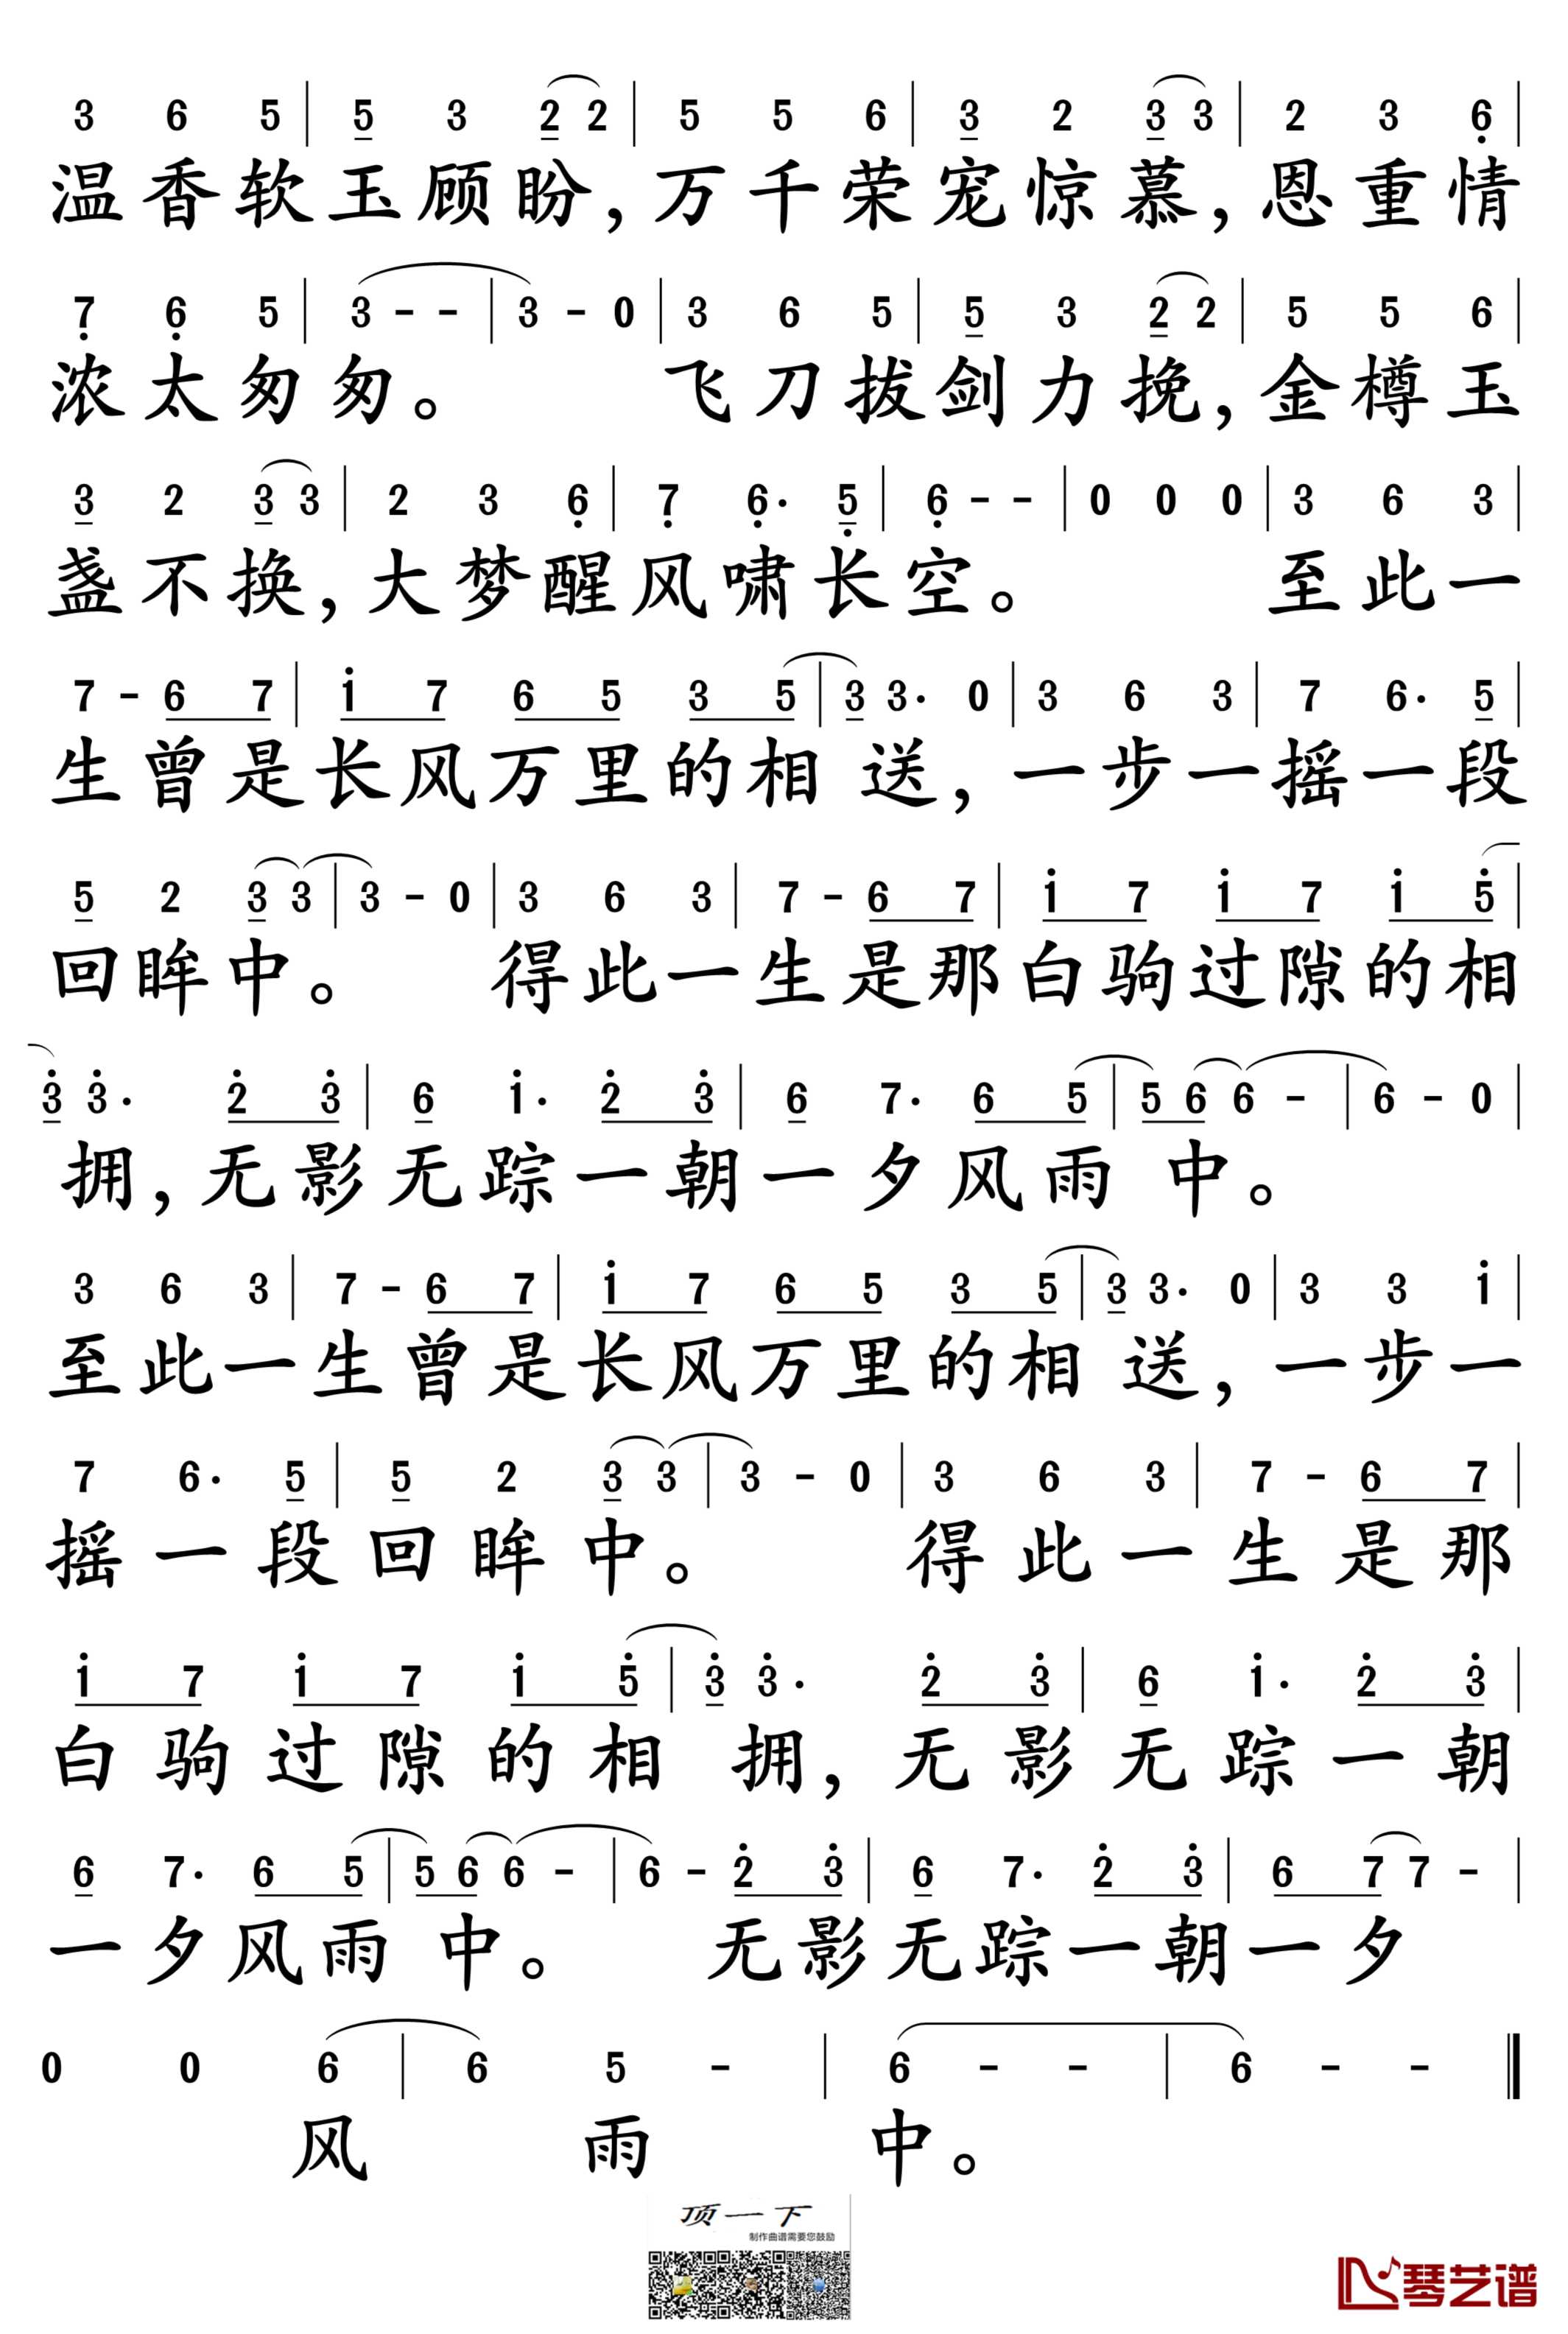 3 6 5 | 5 3 2 2 | 5 5 6 | 3 2 3 3 | 2 3 6 |
温香软玉顾盼,万千荣宠惊慕,恩重情
7 6 5 | 3 - - | 3 - 0 | 3 6 5 | 5 3 2 2 | 5 5 6 |
浓太匆匆。 飞刀拔剑力挽,金樽玉
3 2 3 3 | 2 3 6 | 7 6· 5 | 6 - - | 0 0 0 | 3 6 3 |
盏不换,大梦醒风啸长空。 至此一
7 - 6 7 | 1 7 6 5 3 5 | 3 3· 0 | 3 6 3 | 7 6· 5 |
生曾是长风万里的相送,一步一摇一段
5 2 3 3 | 3 - 0 | 3 6 3 | 7 - 6 7 | 1 7 1 7 1 5 |
回眸中。 得此一生是那白驹过隙的相
3 3· 2 3 | 6 1· 2 3 | 6 7· 6 5 | 5 6 6 - | 6 - 0 |
拥,无影无踪一朝一夕风雨中。
3 6 3 | 7 - 6 7 | 1 7 6 5 3 5 | 3 3· 0 | 3 3 1 |
至此一生曾是长风万里的相送,一步一
7 6· 5 | 5 2 3 3 | 3 - 0 | 3 6 3 | 7 - 6 7 |
摇一段回眸中。 得此一生是那
1 7 1 7 1 5 | 3 3· 2 3 | 6 1· 2 3 |
白驹过隙的相拥,无影无踪一朝
6 7· 6 5 | 5 6 6 - | 6 - 2 3 | 6 7· 2 3 | 6 7 7 - |
一夕风雨中。 无影无踪一朝一夕
0 0 6 | 6 5 - | 6 - - | 6 - -
风 雨 中。
顶一下
制作曲谱需要您鼓励
琴艺谱